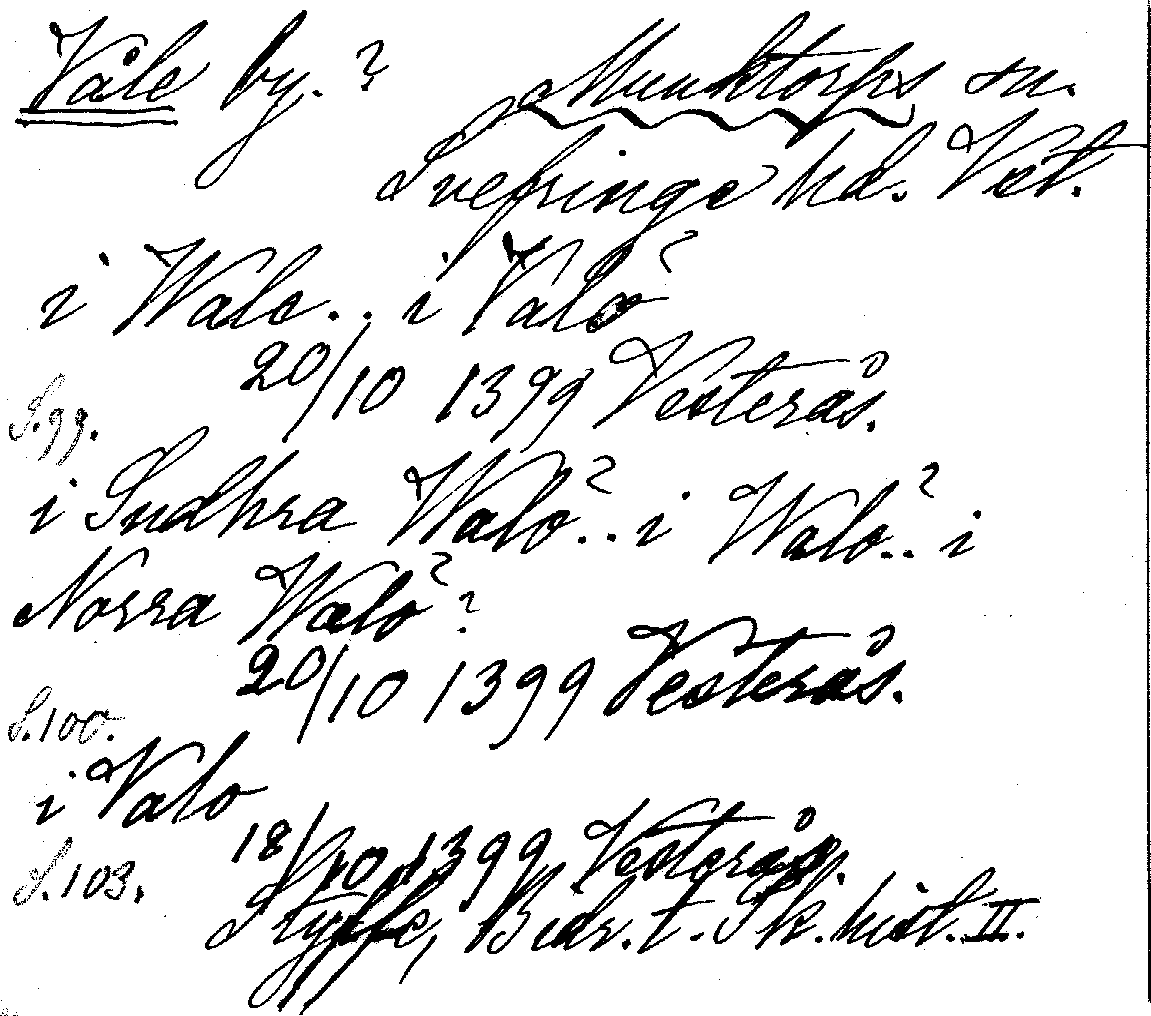 Våle by. ? Munktorps sn.
Snefringe hd. Vst.
i Wale.. i Valo?
20/10 1399 Vesterås.
S. 99.
i Sudhra Walo?.. i Walo?.. i
Norra Walo? ?
20/10 1399 Vesterås.
S. 100.
i Valo
18/10 1399 Vesterås.
S. 103.
Styffe, Bidr. t. Sk. hist. II.